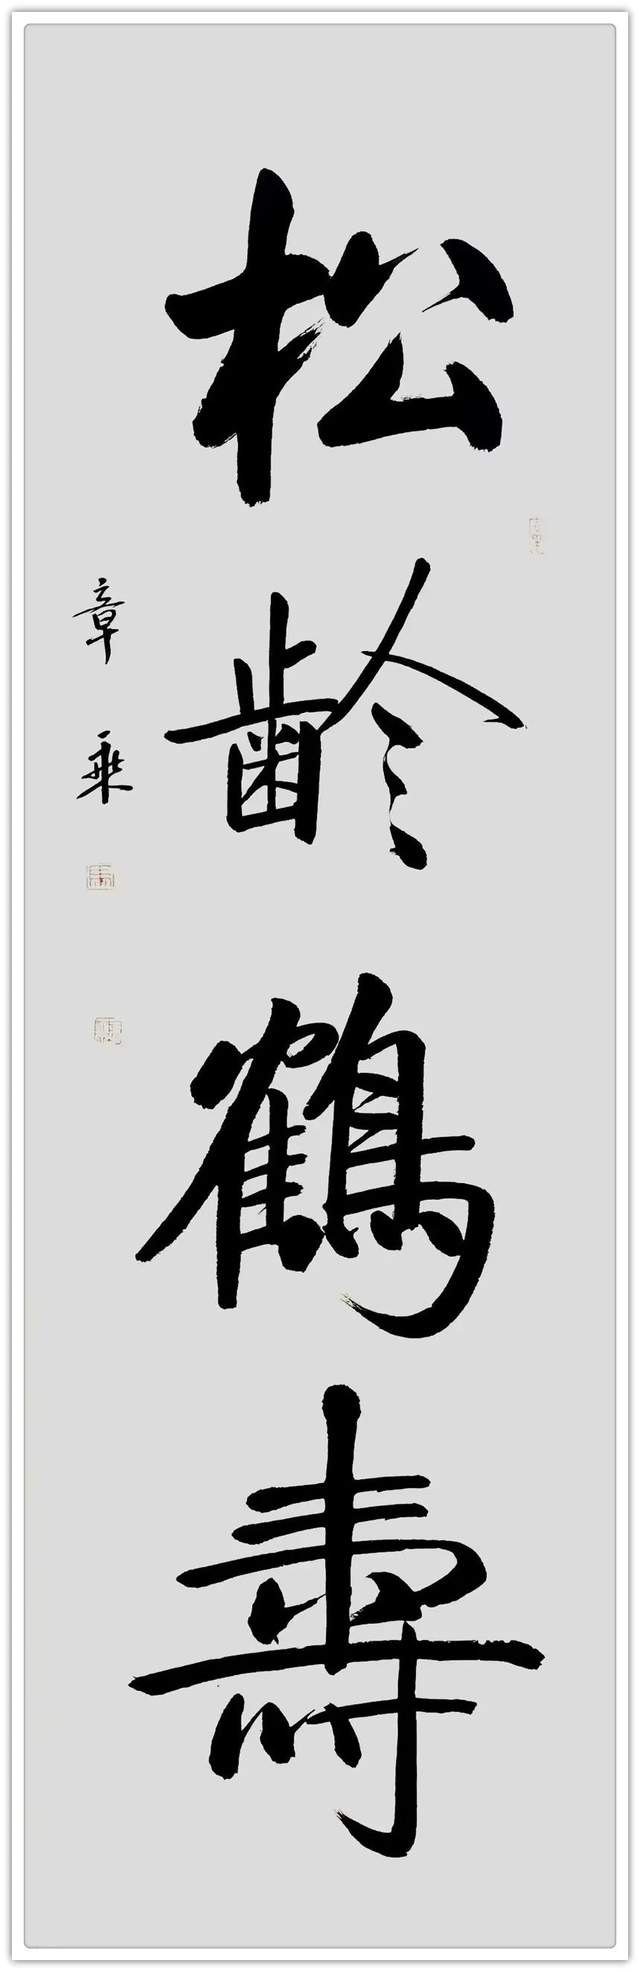 松齡鶴壽
章乗